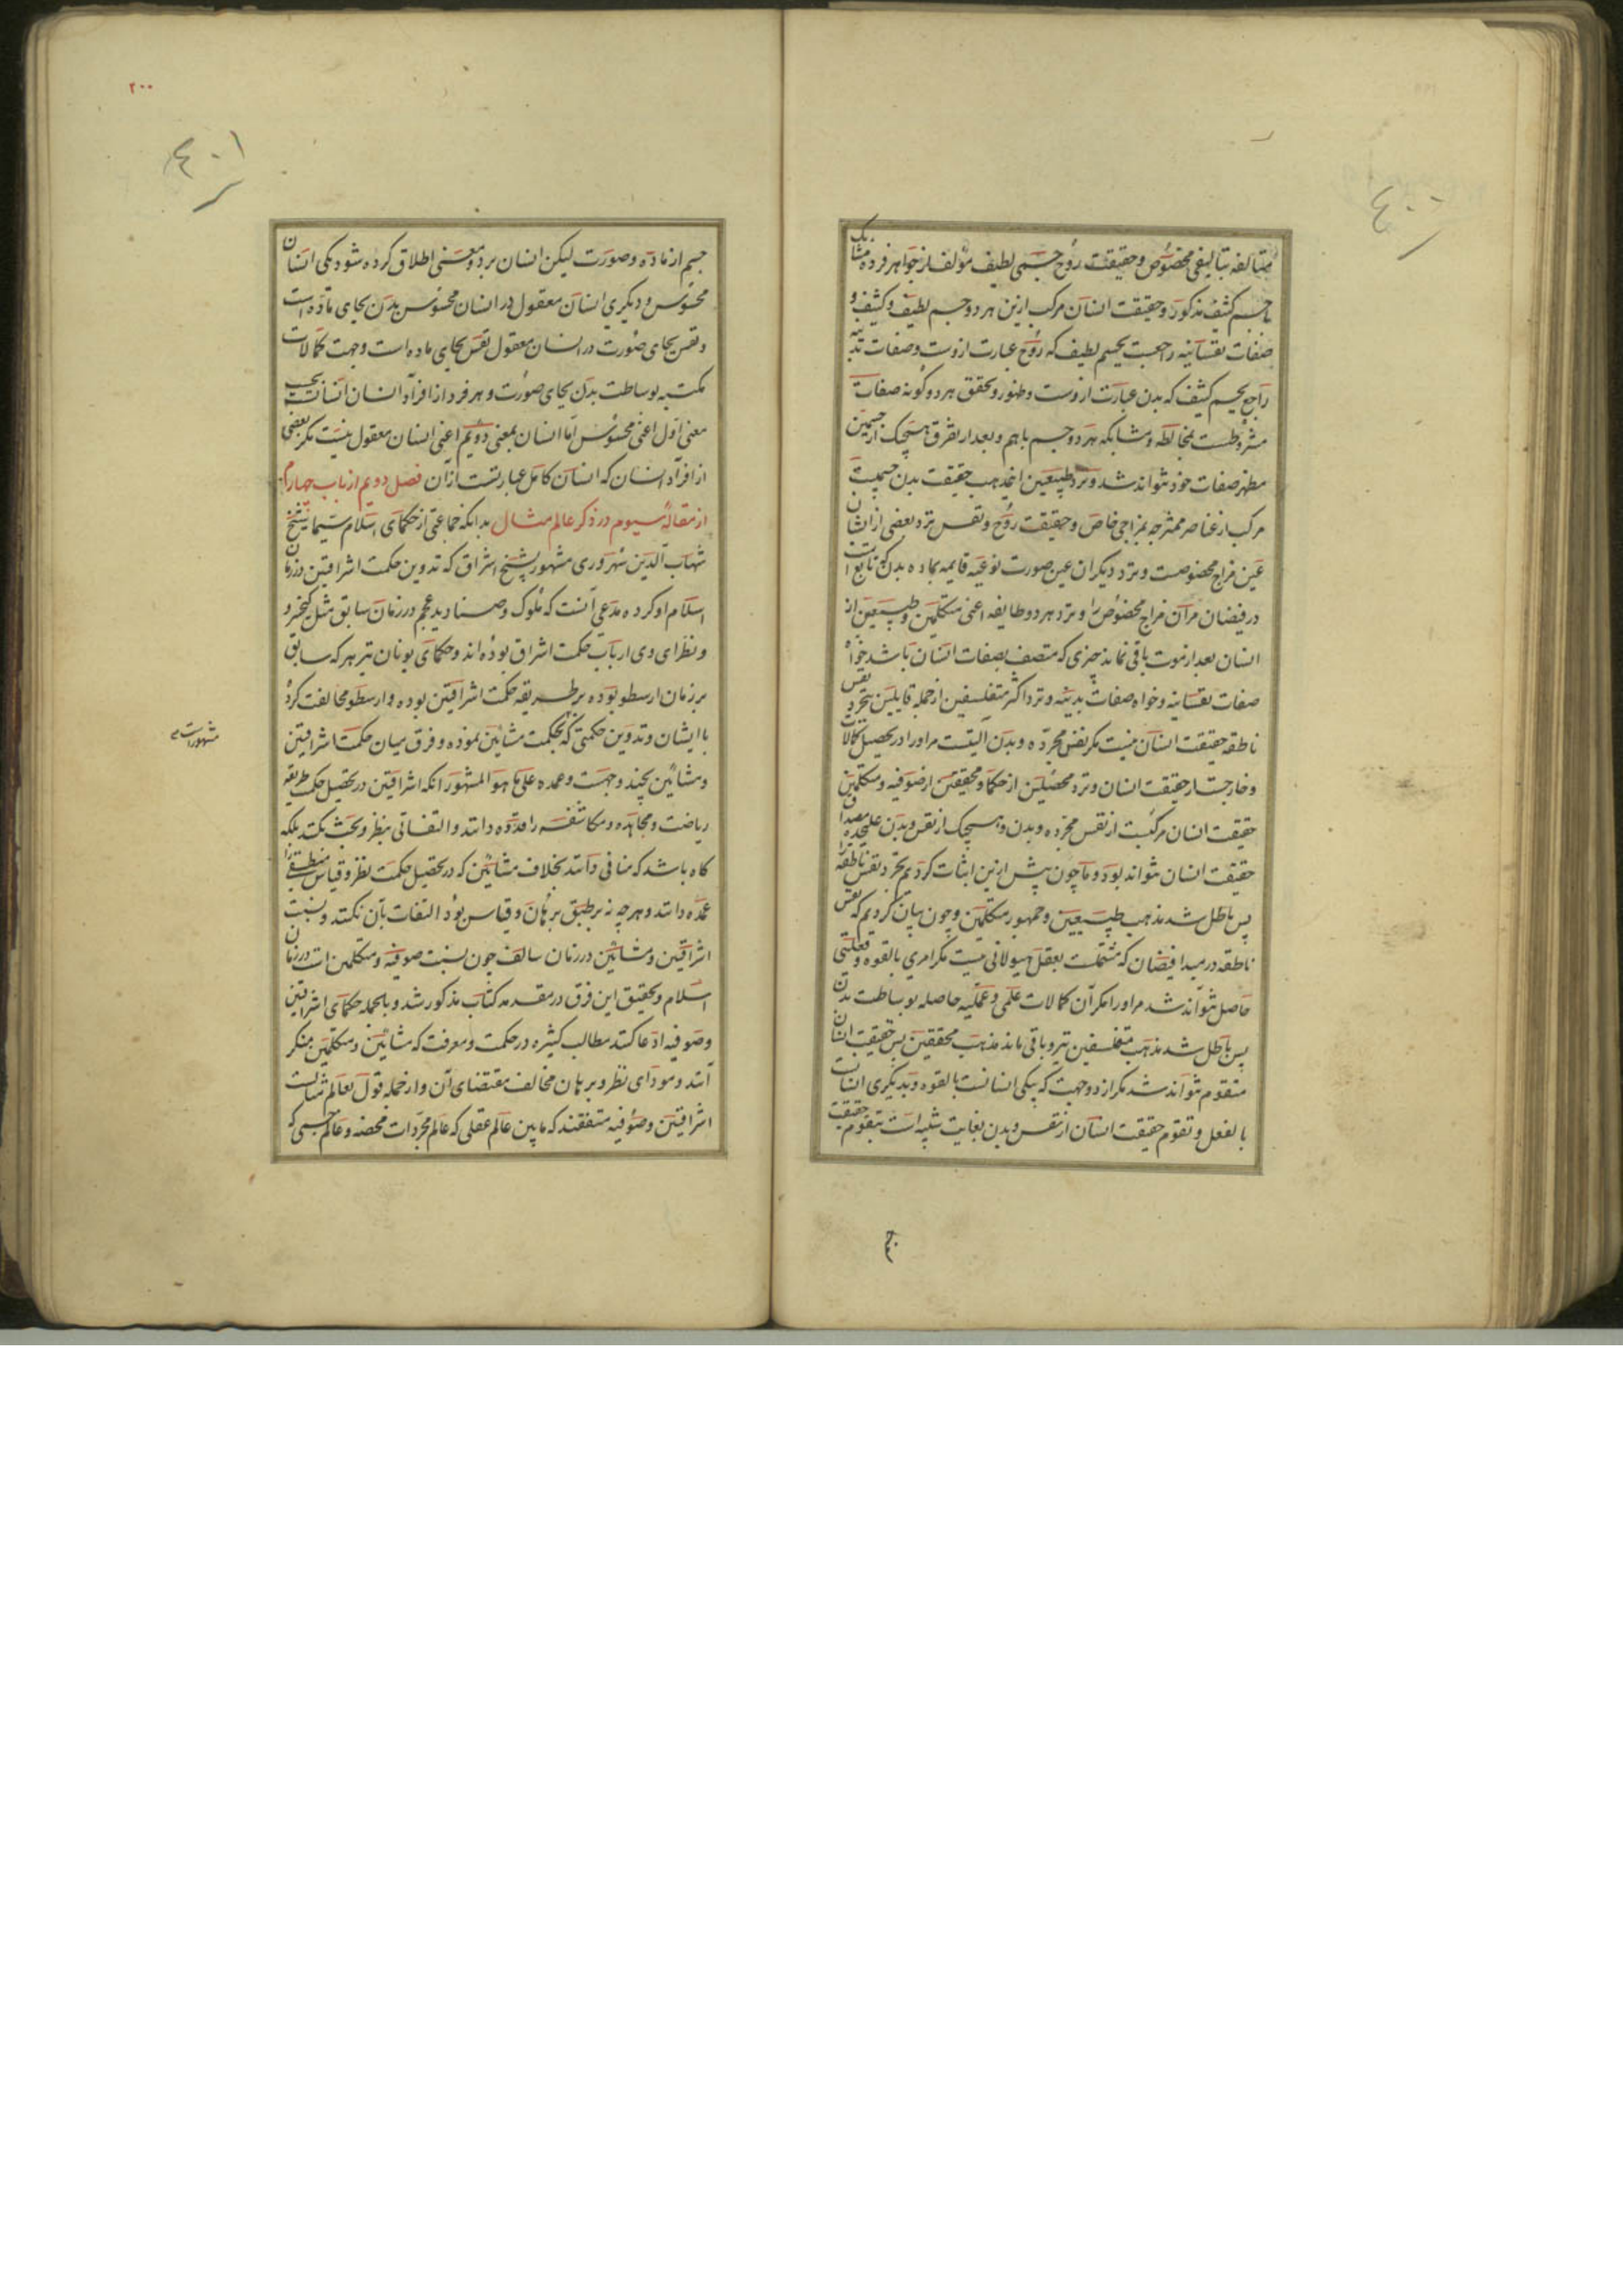 ٤٠٠
متالفه بتالیفی مخصوص و حقیقت روح جسمی لطیف مؤلف از جواهر فرده مشابک
با جسم کثیف مذکور و حقیقت انسان مرکب ازین هر دو جسم لطیف و کثیف و
صفات نفسانیه راجعست بجسم لطیف که روح عبارت ازوست و صفات بدنیه
راجع بجسم کثیف که بدن عبارت ازوست و ظهور و تحقق هر دو گونه صفات
مشروطست بمخالطه و مشابکه هر دو جسم باهم و بعد از تفرق هیچیک از جسمین
مظهر صفات خود نتواند شد و نزد طبیعین اینمذهب حقیقت بدن جسمیت
مرکب از عناصر ممتزجه بمزاجی خاص و حقیقت روح و نفس نزد بعضی از ایشان
عین مزاج مخصوصست و نزد دیگران عین صورت نوعیه قایمه بماده بدن که تابع است
در فیضان مر آن مزاج مخصوص را و نزد هر دو طایفه اعنی متکلمین و طبیعین از
انسان بعد از موت باقی نماند چیزی که متصف بصفات انسان باشد خواه
صفات نفسانیه و خواه صفات بدنیه و نزد اکثر متفلسفین از جمله قایلین بتجرد نفس
ناطقه حقیقت انسان نیست مگر نفس مجرده و بدن آلتیست مر او را در تحصیل کمالات
و خارجست از حقیقت انسان و نزد محصلین از حکما و محققین از صوفیه و متکلمین
حقیقت انسان مرکبست از نفس مجرده و بدن و هیچیک از نفس و بدن علیحده مصداق
حقیقت انسان نتواند بود و ما چون پیش ازین اثبات کردیم تجرد نفس ناطقه را
پس باطل شد مذهب طبیعیین و جمهور متکلمین و چون بیان کردیم که نفس
ناطقه در مبدا فیضان که مسماست بعقل هیولانی نیست مگر امری بالقوه و فعلیتی
حاصل نتواند شد مر او را مگر آن کمالات علمی و عملیه حاصله بوساطت بدن
پس باطل شد مذهب متفلسفین نیز و باقی ماند مذهب محققین پس حقیقت انسان
متقوم نتواند شد مگر از دو جهت که بیکی انسانست بالقوه و بدیگری انسانست
بالفعل و تقوم حقیقت انسان از نفس و بدن بغایت شبیه است بتقوم حقیقت
٢٠٠
٤٠١
جسم از ماده و صورت لیکن انسان بر دو معنی اطلاق کرده شود یکی انسان
محسوس و دیگری انسان معقول در انسان محسوس بدن بجای ماده است
و نفس بجای صورت در انسان معقول نفس بجای ماده است و جهت کمالات
مکتسبه بوساطت بدن بجای صورت و هر فرد از افراد انسان انسانست بحسب
معنی اول اعنی محسوس اما انسان بمعنی دویم اعنی انسان معقول نیست مگر بعضی
از افراد انسان که انسان کامل عبارتست از آن فصل دویم از باب چهارم
از مقالهٔ سیوم در ذکر عالم مثال بدانکه جماعتی از حکمای اسلام سیما شیخ
شهاب الدین سهروردی مشهور بشیخ اشراق که تدوین حکمت اشراقیین در زمان
اسلام او کرده مدعی آنست که ملوک و صنادید عجم در زمان سابق مثل کیخسرو
و نظرای وی ارباب حکمت اشراق بوده اند و حکمای یونان نیز هر که سابق
بر زمان ارسطو بوده بر طریقه حکمت اشراقیین بوده و ارسطو مخالفت کرد
با ایشان و تدوین حکمتی که بحکمت مشائین نموده و فرق میان حکمت اشراقیین
مشهور است
و مشائین بچند وجهست و عمده علی ما هو المشهور آنکه اشراقیین در تحصیل حکمت طریقه
ریاضت و مجاهده و مکاشفه را قدوه دانند و التفاتی بنظر و بحث نکنند بلکه
گاه باشد که منافی دانند بخلاف مشائین که در تحصیل حکمت نظر و قیاس منطقی را
عمده دانند و هر چه نه بر طبق برهان و قیاس بود التفات بآن نکنند و نسبت
اشراقیین و مشائین در زمان سالف چون نسبت صوفیه و متکلمین است در زمان
اسلام و تحقیق این فرق در مقدمه کتاب مذکور شد و بالجمله حکمای اشراقیین
و صوفیه ادعا کنند مطالب کثیره در حکمت و معرفت که مشائین و متکلمین منکر
آنند و مودای نظر و برهان مخالف مقتضای آن و از جمله قول بعالم مثالست
اشراقیین و صوفیه متفقند که مابین عالم عقلی که عالم مجردات محضه و عالم جسمی که